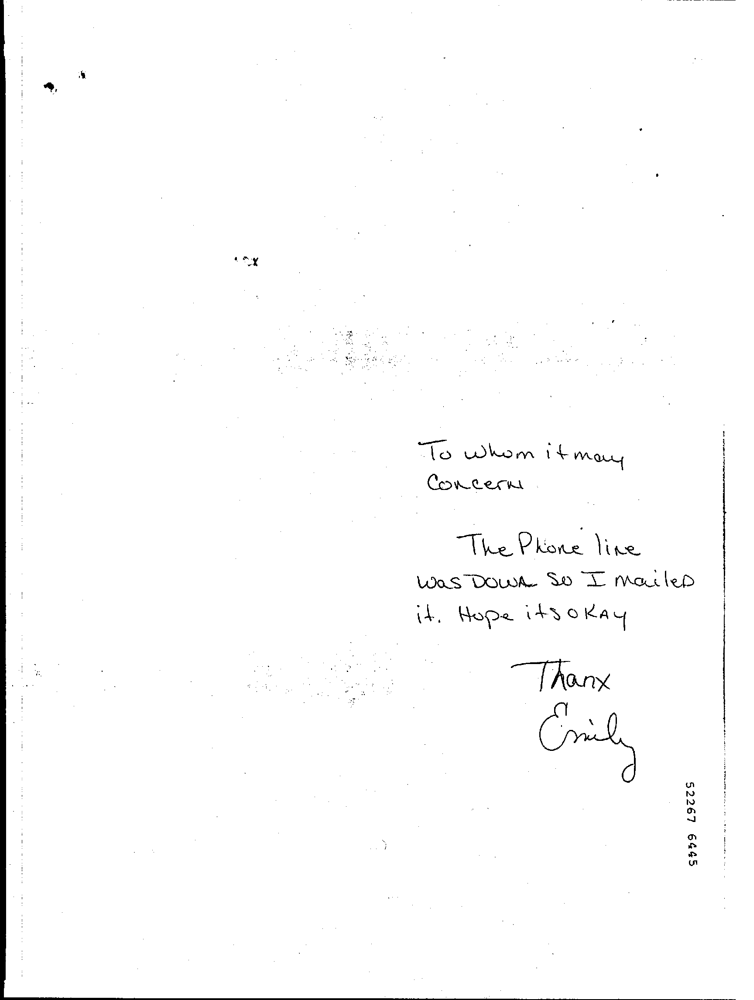 To whom it may
Concern
The Phone line
was Down so I mailed
it. Hope its okay
Thanx
Emily
52267 6445